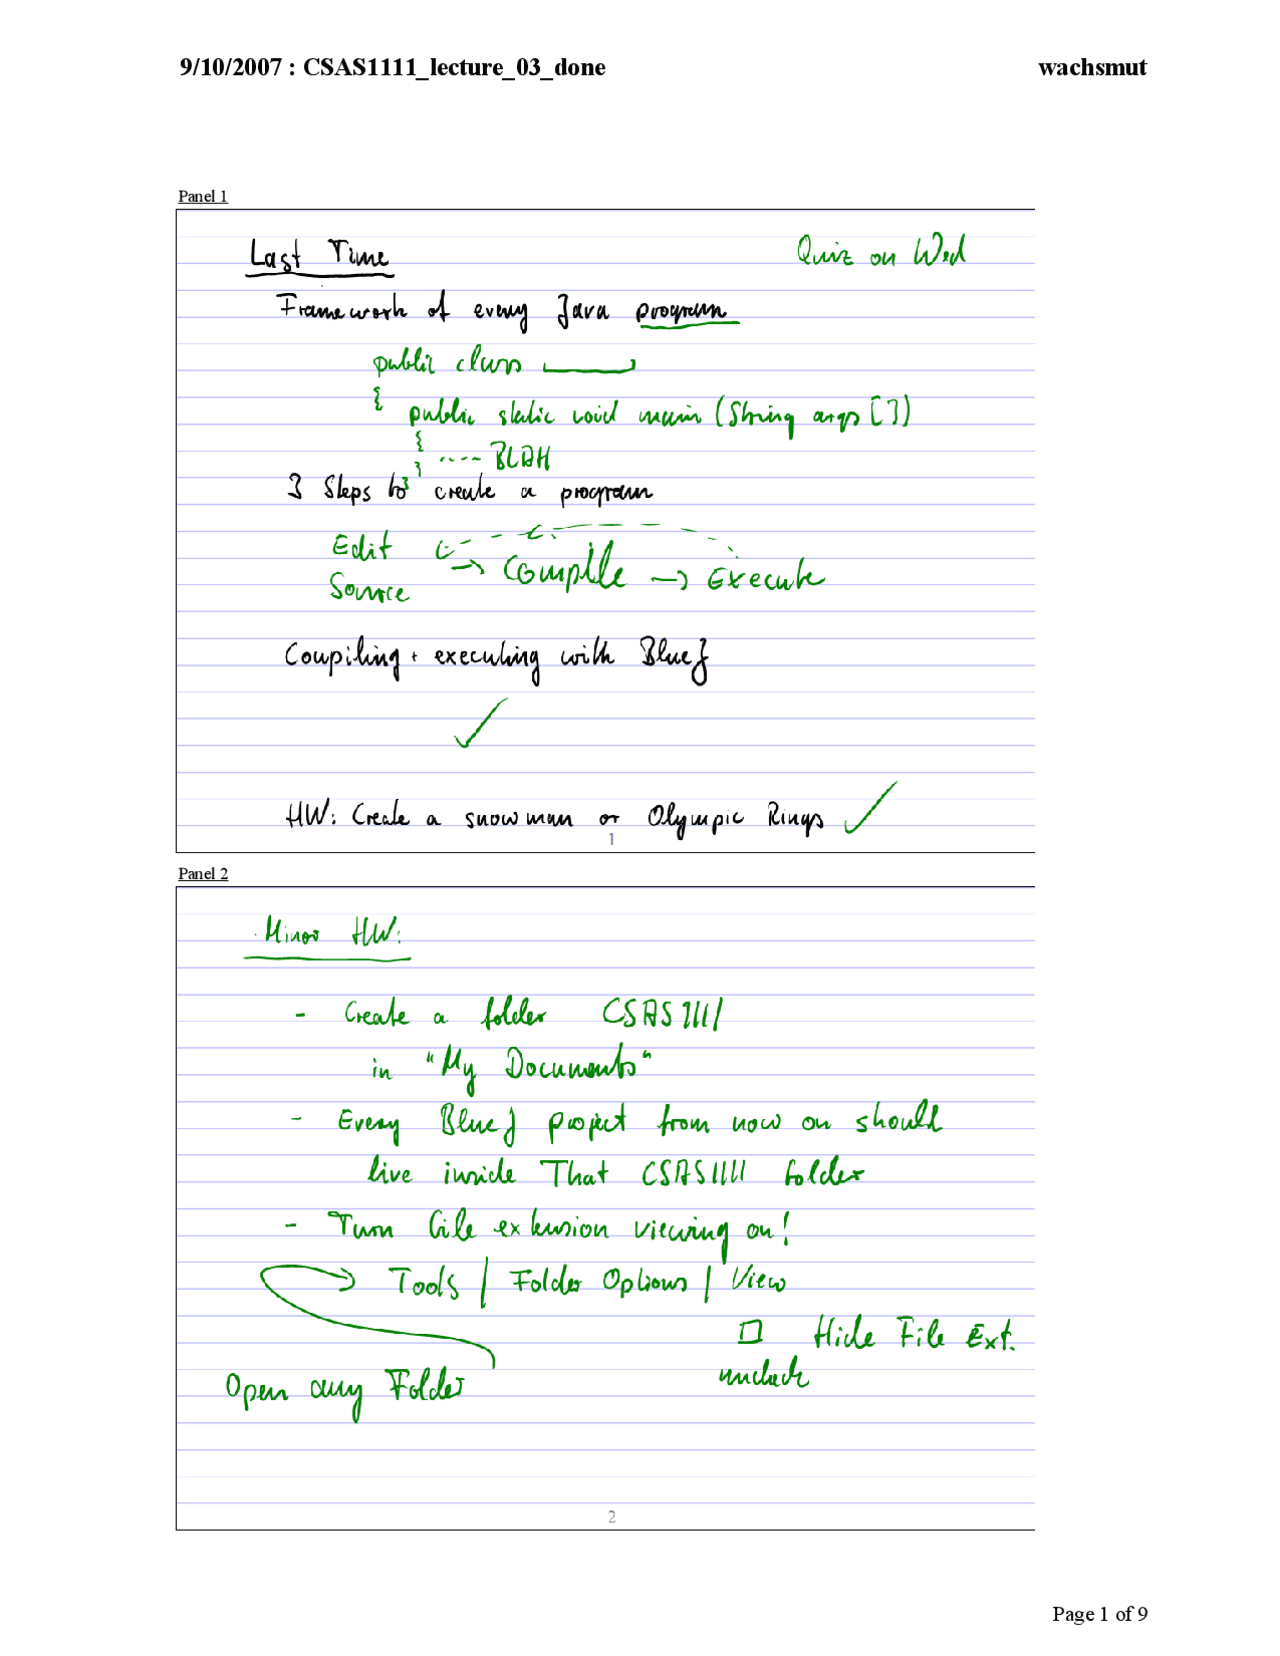 9/10/2007 : CSAS1111_lecture_03_done wachsmut
Panel 1
Last Time Quiz on Wed
Framework of every Java program
public class
{ public static void main (String args [])
{ ---- BLAH
}
3 Steps to create a program
}
Edit → Compile → Execute
Source
Compiling + executing with BlueJ
✓
HW: Create a snowman or Olympic Rings ✓
1
Panel 2
Minor HW:
- Create a folder CSAS1111
in "My Documents"
- Every BlueJ project from now on should
live inside That CSAS1111 folder
- Turn file extension viewing on!
Tools | Folder Options | View
□ Hide File Ext.
uncheck
Open any Folder
2
Page 1 of 9